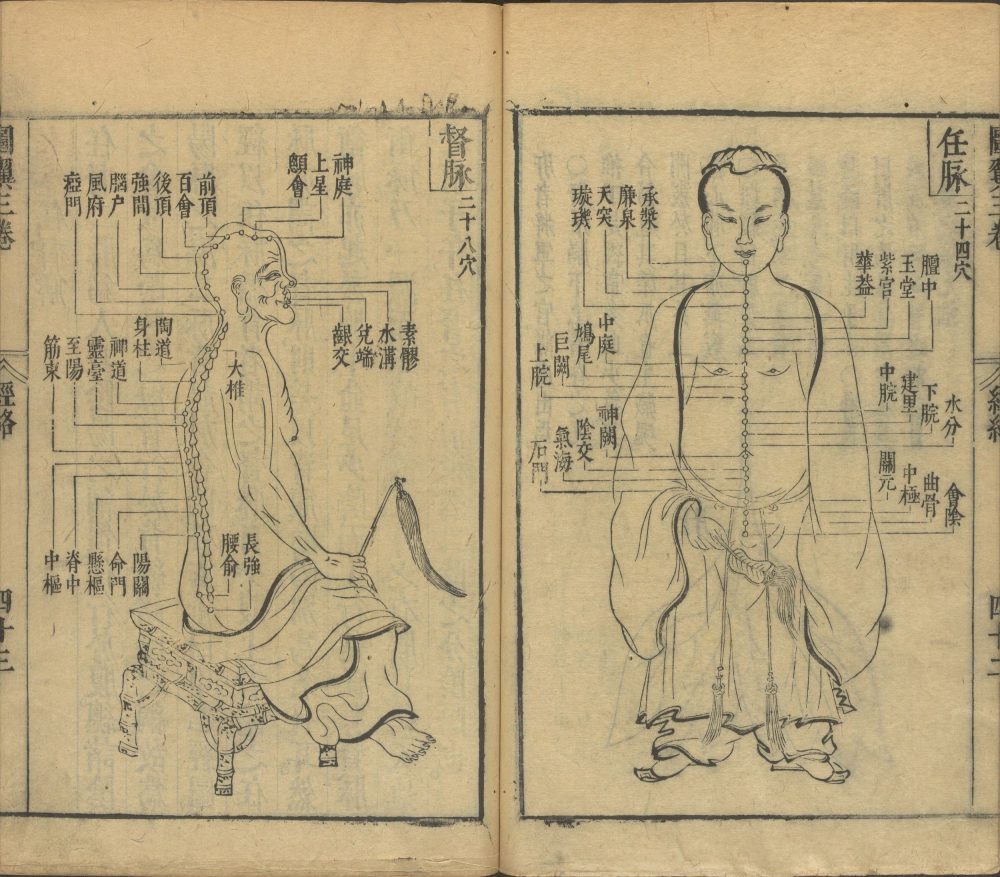 任脉
二十四穴
承漿
廉泉
天突
璇璣
膻中
玉堂
紫宮
華蓋
中庭
鳩尾
巨闕
上脘
水分
下脘
建里
中脘
神闕
陰交
氣海
石門
會陰
曲骨
中極
關元
督脉
二十八穴
神庭
上星
顖會
前頂
百會
後頂
強間
腦户
風府
瘂門
素髎
水溝
兌端
齦交
大椎
陶道
身柱
神道
靈臺
至陽
筋束
長強
腰俞
陽關
命門
懸樞
脊中
中樞
圖翼三卷
經絡
四十三